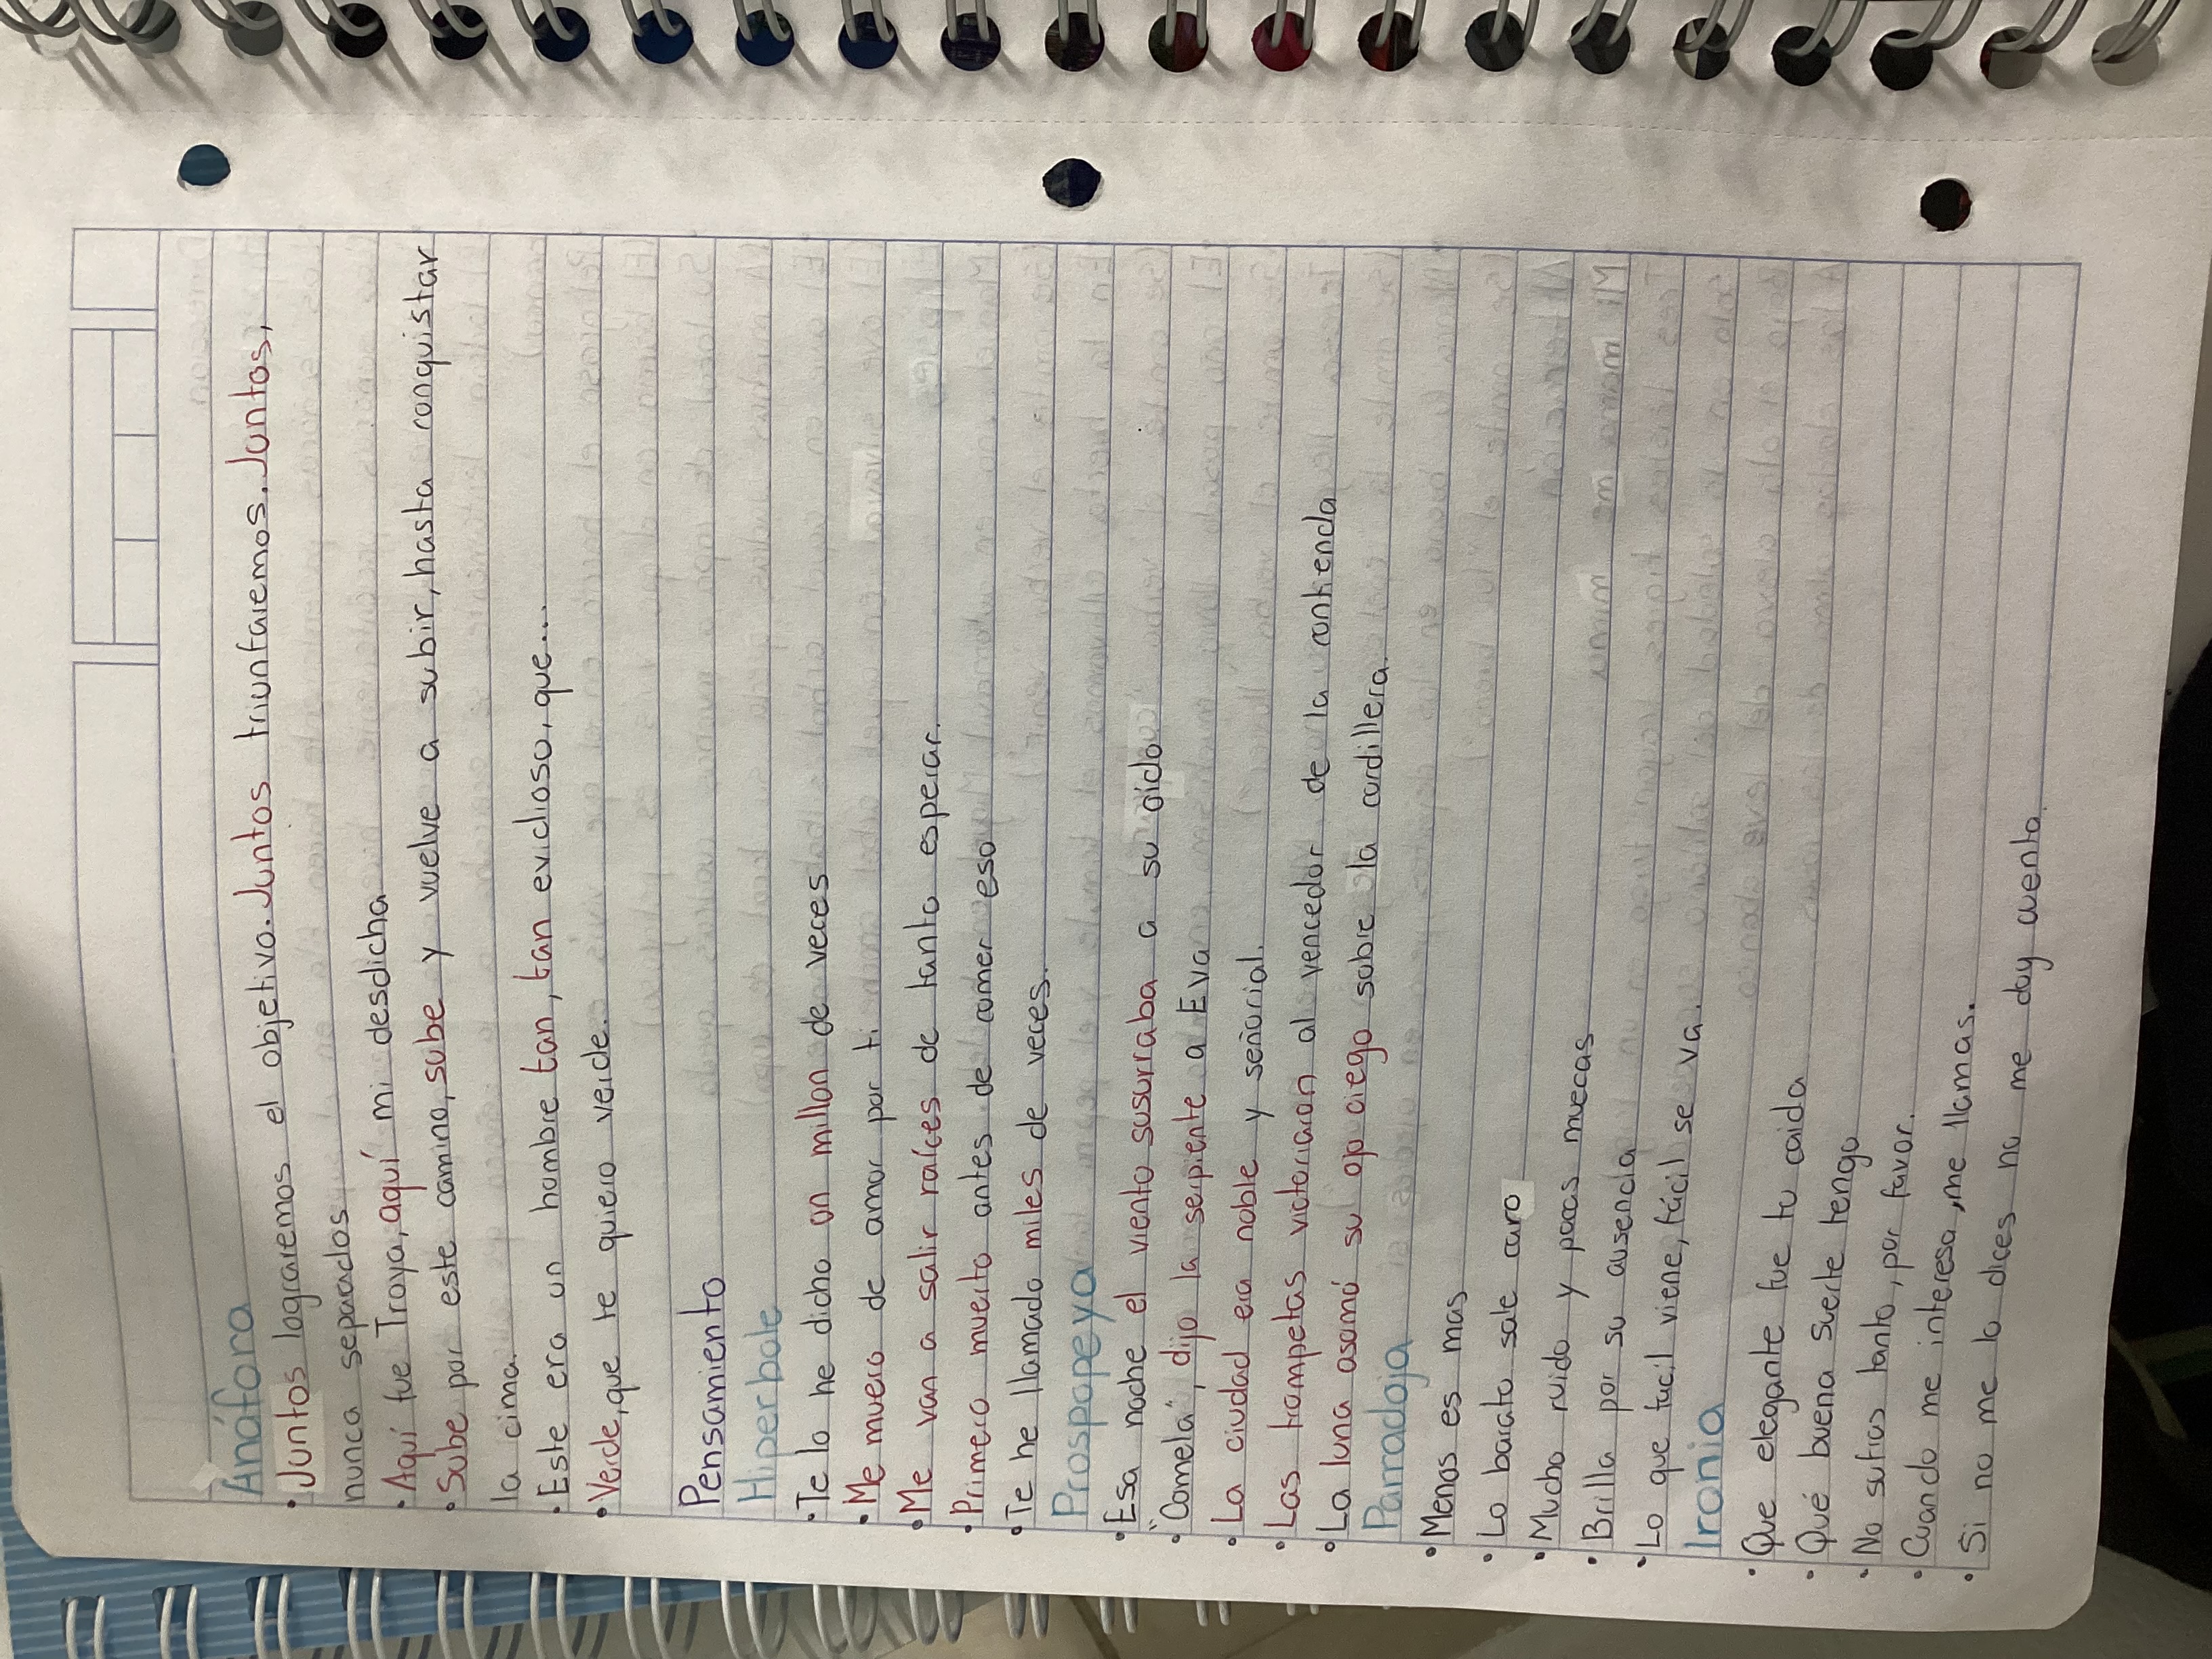 Anáfora
• Juntos lograremos el objetivo. Juntos triunfaremos. Juntos,
nunca separados
• Aquí fue Troya, aquí mi desdicha
• Sube por este camino, sube y vuelve a subir, hasta conquistar
la cima.
• Este era un hombre tan, tan, tan evidioso, que...
• Verde, que te quiero verde.
Pensamiento
Hiperbole
• Te lo he dicho un millon de veces
• Me muero de amor por ti
• Me van a salir raíces de tanto esperar.
• Primero muerto antes de comer eso
• Te he llamado miles de veces.
Prospopeya
• Esa noche el viento susurraba a su oido
• "Comela", dijo la serpiente a Eva
• La ciudad era noble y señorial.
• Las trompetas victoriaron al vencedor de la contienda
• La luna asomó su ojo ciego sobre la cordillera.
Parradoja
• Menos es mas
• Lo barato sale caro
• Mucho ruido y pocas nueces
• Brilla por su ausencia
• Lo que facil viene, fácil se va.
Ironia
• Que elegante fue tu caida
• Qué buena suerte tengo
• No sufras tanto, por favor.
• Cuando me interesa, me llamas.
• Si no me lo dices no me doy cuenta.